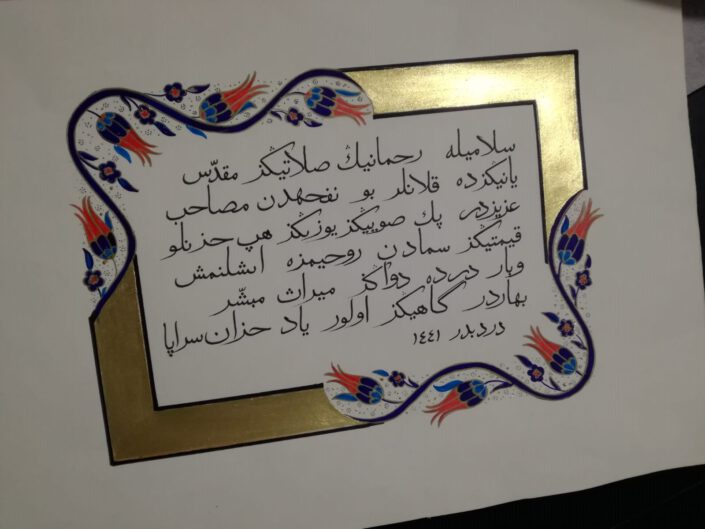 سلاميله رحمانيڭ صلاتيڭز مقدّس
يانيڭزده قلانلر بو نفحهدن مصاحب
عزيزدر پك صوييڭز يوزيڭز هپ حزنلو
قيمتيڭز سمادن روحيمزه ايشلنمش
و بار درده دواڭز ميراث مبشّر
بهاردر گاهيڭز اولور ياد حزان سراپا
دردبدر ١٤٤١